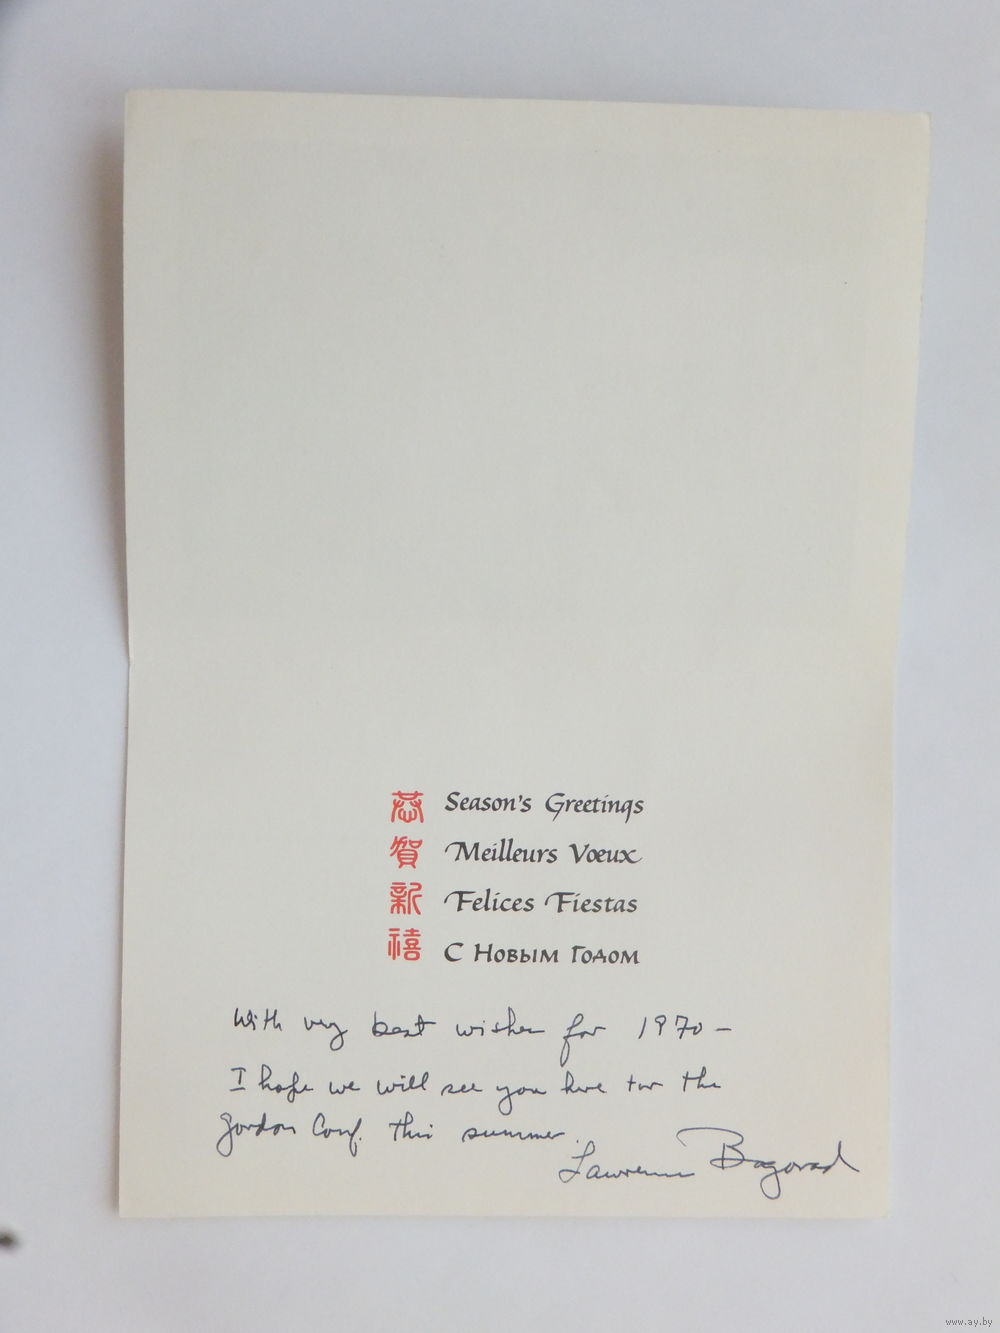 恭 Season's Greetings
賀 Meilleurs Vœux
新 Felices Fiestas
禧 С Новым Годом
With very best wishes for 1970 –
I hope we will see you here for the
Gordon Conf. this summer.
Lawrence Bogorad
www.ay.by